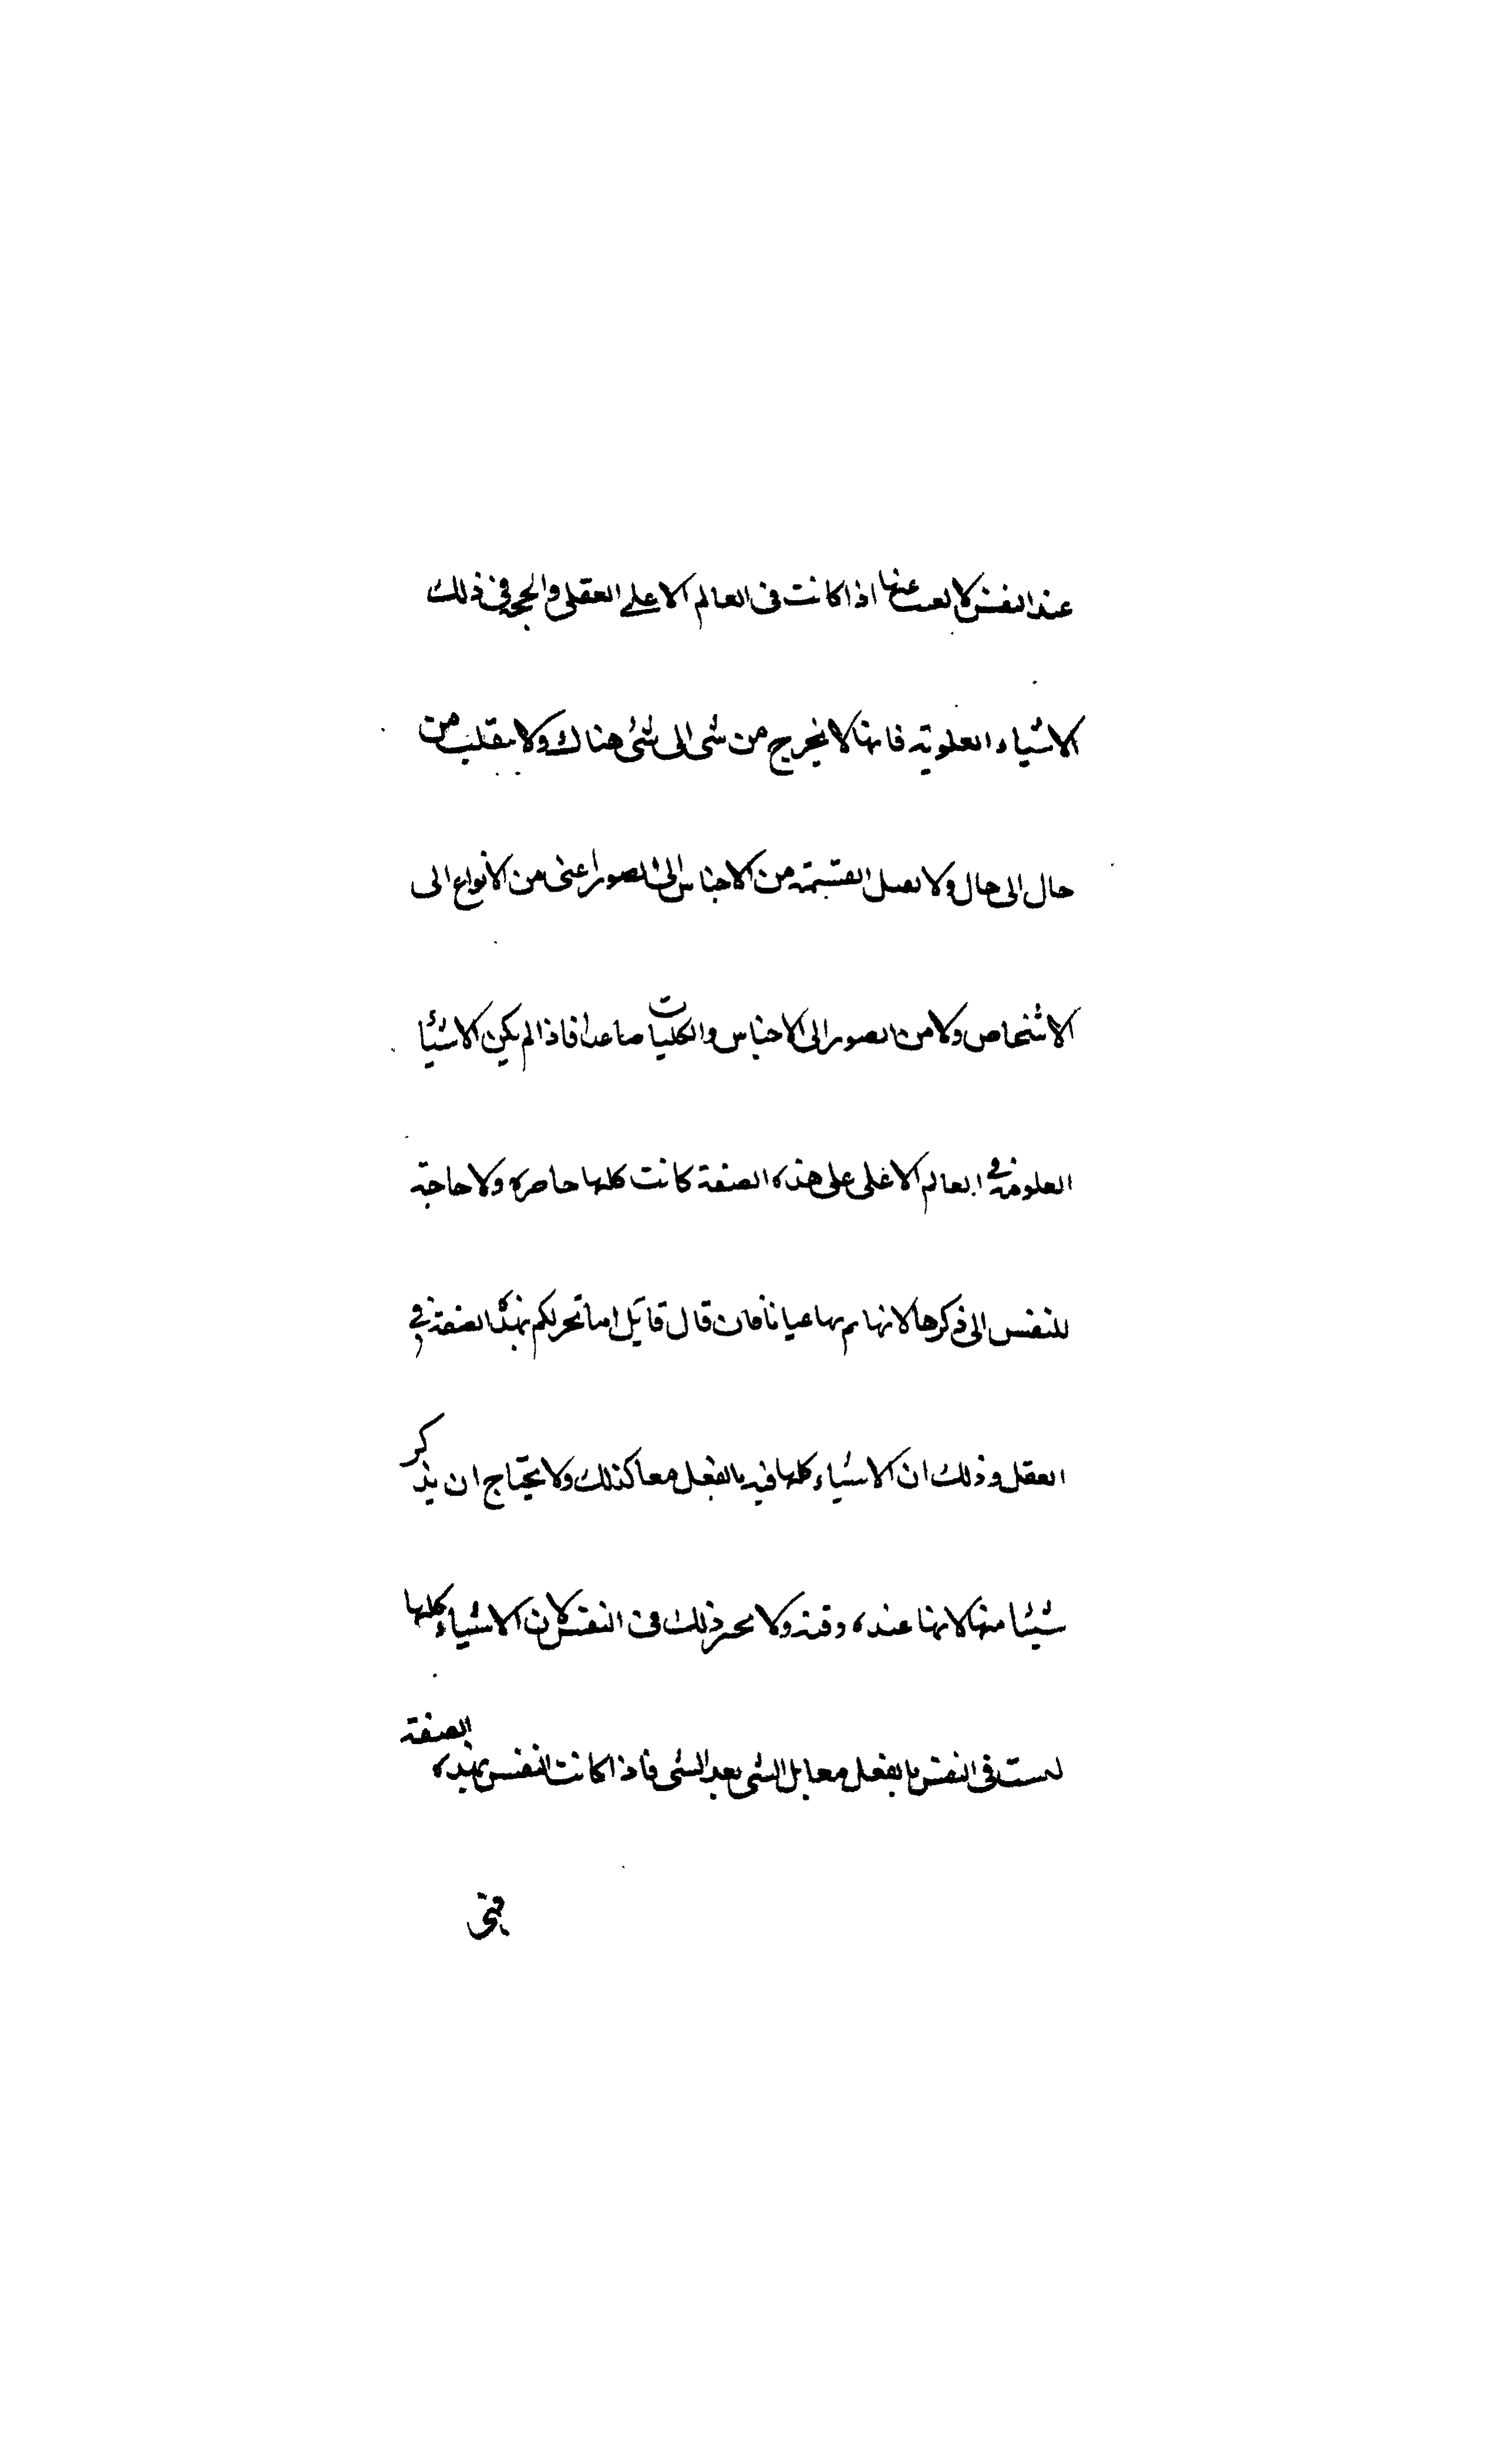 عند النفس لا لعب عنها اذا كانت فى العالم الاعلى العقلى والحجة فى ذلك
الاشياء العلوية فانها لا يخرج من شى الى شئ هناك ولا ينقلب من
حال الى حال ولا يصل القسمة من الاجناس الى الصور اعنى من الانواع الى
الاشخاص ولا من الصور الى الاجناس والكليات صاعدا فاذا لم يكن الاشيا
العلوية فى العالم الاعلى على هذه الصفة كانت كلها حاضره ولا حاجة
للنفس الى ذكرها لانها عيانا فان قال قايل اما نحر لكم بهذه الصفة فى
العقل وذلك ان الاشياء كلها فيه بالفعل معا كذلك ولا يحتاج ان يذكر
شيئا منها لانها عنده وفيه ولا ذلك فى النفس لان الاشياء كلها
ليست فى النفس بالفعل معا بل الشى بعد الشى فاذا كانت النفس بهذه الصفة